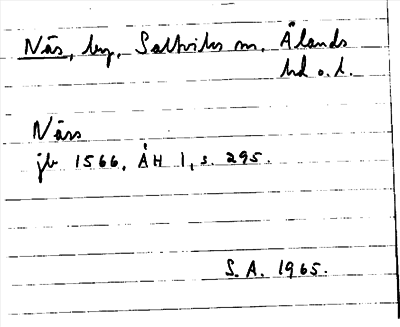 Näs, by, Saltviks sn, Ålands
hd o. l.
Näss
jb 1566, ÅH 1, s. 295.
S.A. 1965.